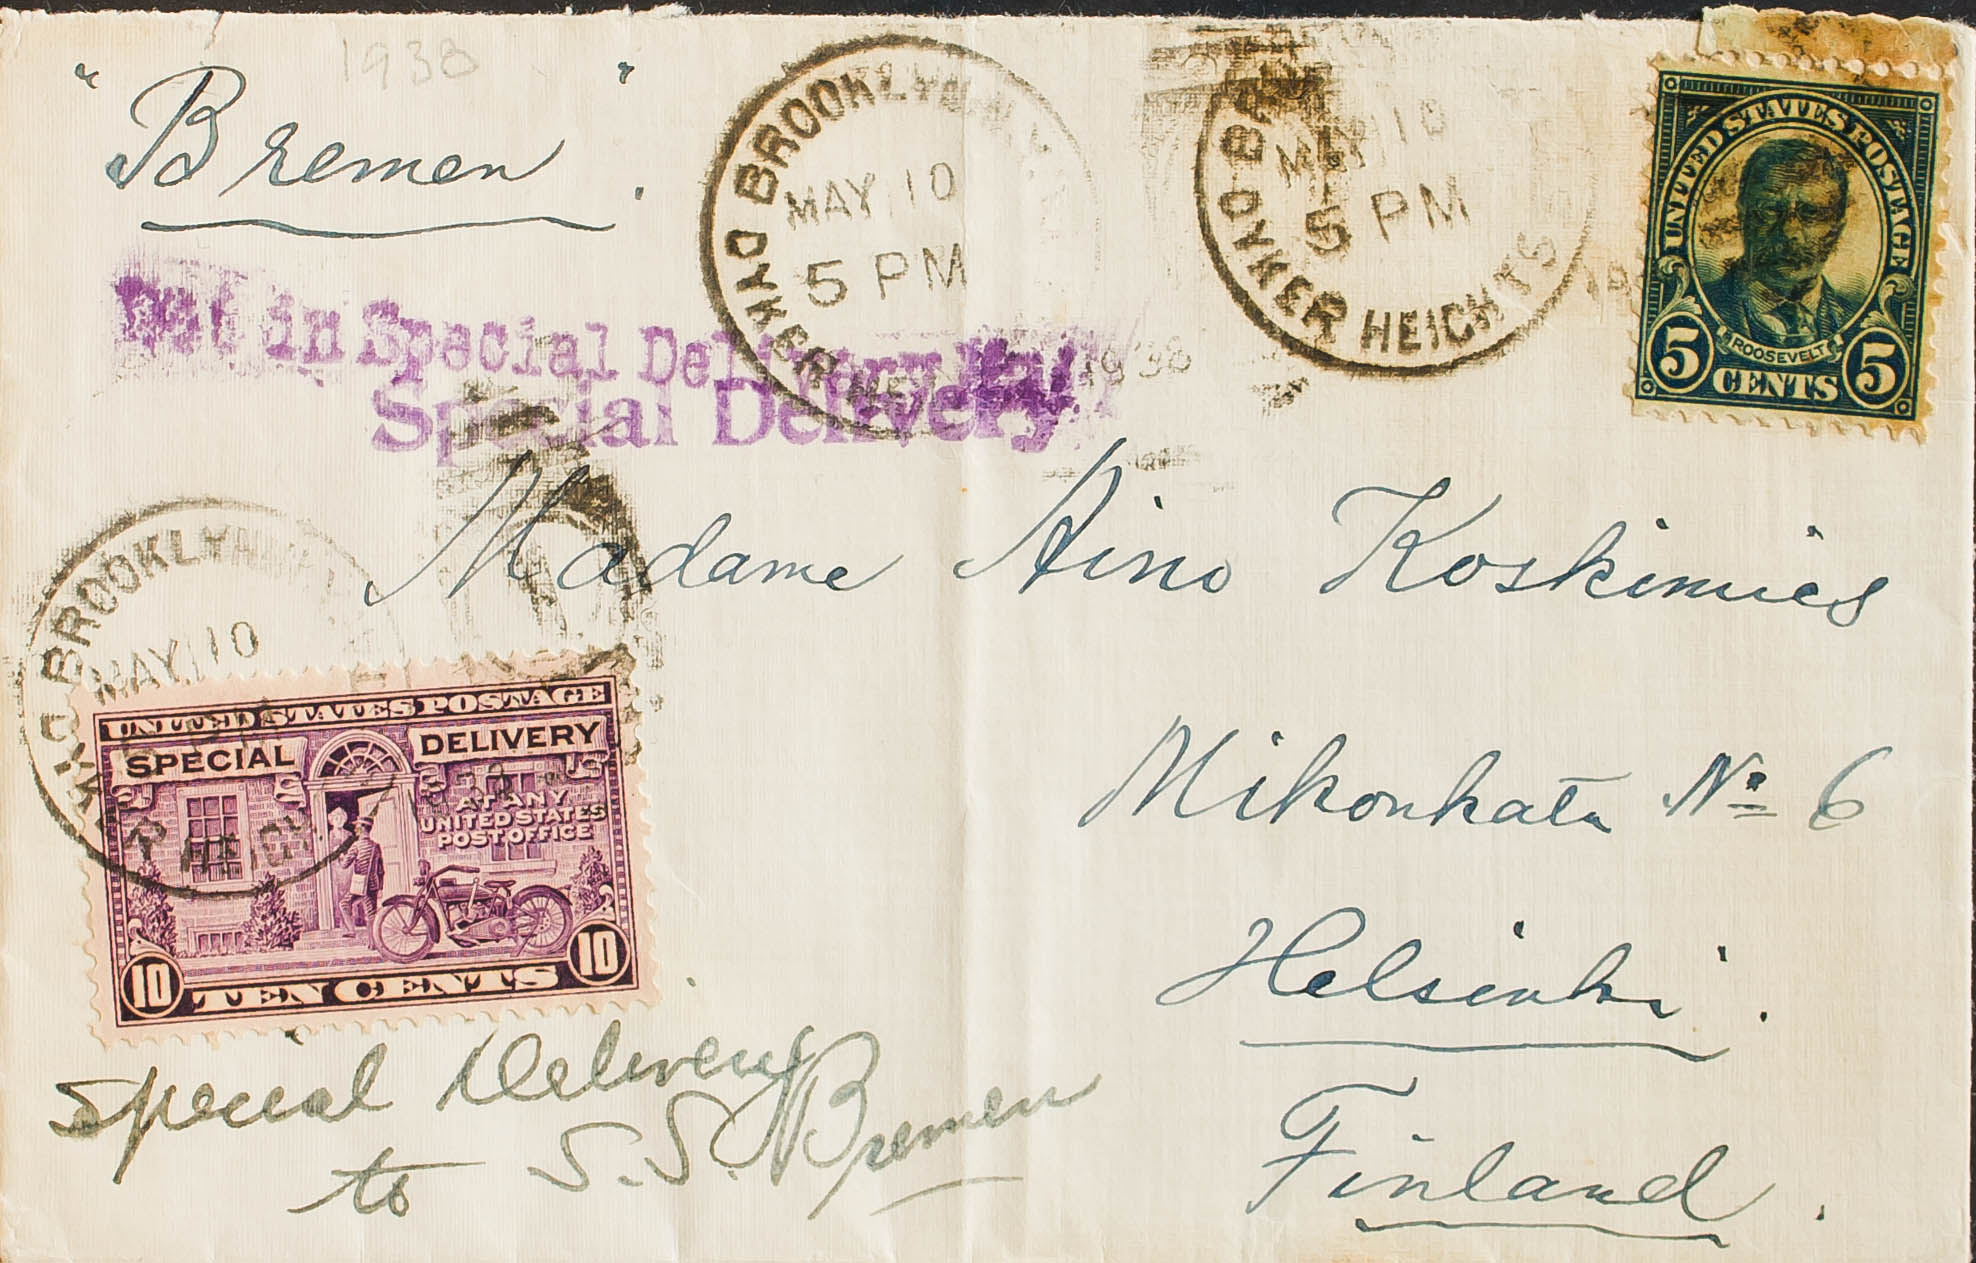 1938
"Bremen".
BROOKLYN
MAY 10
5 PM
DYKER HEIGHTS
MAY 10
5 PM
DYKER HEIGHTS
UNITED STATES POSTAGE
ROOSEVELT
5 CENTS 5
in Special Delivery
1938
Special Delivery
Madame Aino Koskimies
Mikonkatu No 6
Helsinki.
Finland.
BROOKLYN
MAY 10
UNITED STATES POSTAGE
SPECIAL DELIVERY
AT ANY
UNITED STATES
POST OFFICE
10 TEN CENTS 10
Special Delivery
to S.S. Bremen